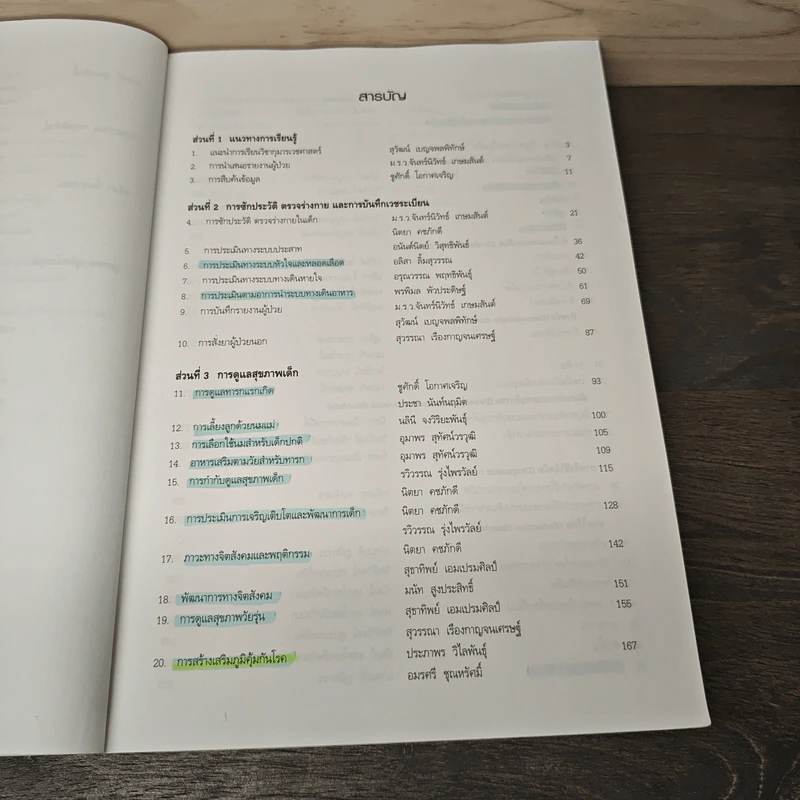 สารบัญ
ส่วนที่ 1 แนวทางการเรียนรู้
1. แนะนำการเรียนวิชากุมารเวชศาสตร์ สุวัฒน์ เบญจพลพิทักษ์ 3
2. การนำเสนอรายงานผู้ป่วย ม.ร.ว.จันทร์นิวัทธ์ เกษมสันต์ 7
3. การสืบค้นข้อมูล ชูศักดิ์ โอกาศเจริญ 11
ส่วนที่ 2 การซักประวัติ ตรวจร่างกาย และการบันทึกเวชระเบียน
4. การซักประวัติ ตรวจร่างกายในเด็ก ม.ร.ว.จันทร์นิวัทธ์ เกษมสันต์ 21
นิตยา คชภักดี
5. การประเมินทางระบบประสาท อนันต์นิตย์ วิสุทธิพันธ์ 36
6. การประเมินทางระบบหัวใจและหลอดเลือด อลิสา ลิ้มสุวรรณ 42
7. การประเมินทางระบบทางเดินหายใจ อรุณวรรณ พฤทธิพันธุ์ 50
8. การประเมินตามอาการนำระบบทางเดินอาหาร พรพิมล พัวประดิษฐ์ 61
9. การบันทึกรายงานผู้ป่วย ม.ร.ว.จันทร์นิวัทธ์ เกษมสันต์ 69
สุวัฒน์ เบญจพลพิทักษ์
10. การสั่งยาผู้ป่วยนอก สุวรรณา เรืองกาญจนเศรษฐ์ 87
ส่วนที่ 3 การดูแลสุขภาพเด็ก
11. การดูแลทารกแรกเกิด ชูศักดิ์ โอกาศเจริญ 93
ประชา นันท์นฤมิต
12. การเลี้ยงลูกด้วยนมแม่ นลินี จงวิริยะพันธุ์ 100
13. การเลือกใช้นมสำหรับเด็กปกติ อุมาพร สุทัศน์วรวุฒิ 105
14. อาหารเสริมตามวัยสำหรับทารก อุมาพร สุทัศน์วรวุฒิ 109
15. การกำกับดูแลสุขภาพเด็ก รวิวรรณ รุ่งไพรวัลย์ 115
นิตยา คชภักดี
16. การประเมินการเจริญเติบโตและพัฒนาการเด็ก นิตยา คชภักดี 128
รวิวรรณ รุ่งไพรวัลย์
17. ภาวะทางจิตสังคมและพฤติกรรม นิตยา คชภักดี 142
สุธาทิพย์ เอมเปรมศิลป์
18. พัฒนาการทางจิตสังคม มนัท สูงประสิทธิ์ 151
19. การดูแลสุขภาพวัยรุ่น สุธาทิพย์ เอมเปรมศิลป์ 155
สุวรรณา เรืองกาญจนเศรษฐ์
20. การสร้างเสริมภูมิคุ้มกันโรค ประภาพร วิไลพันธุ์ 167
อมรศรี ชุณหรัศมิ์